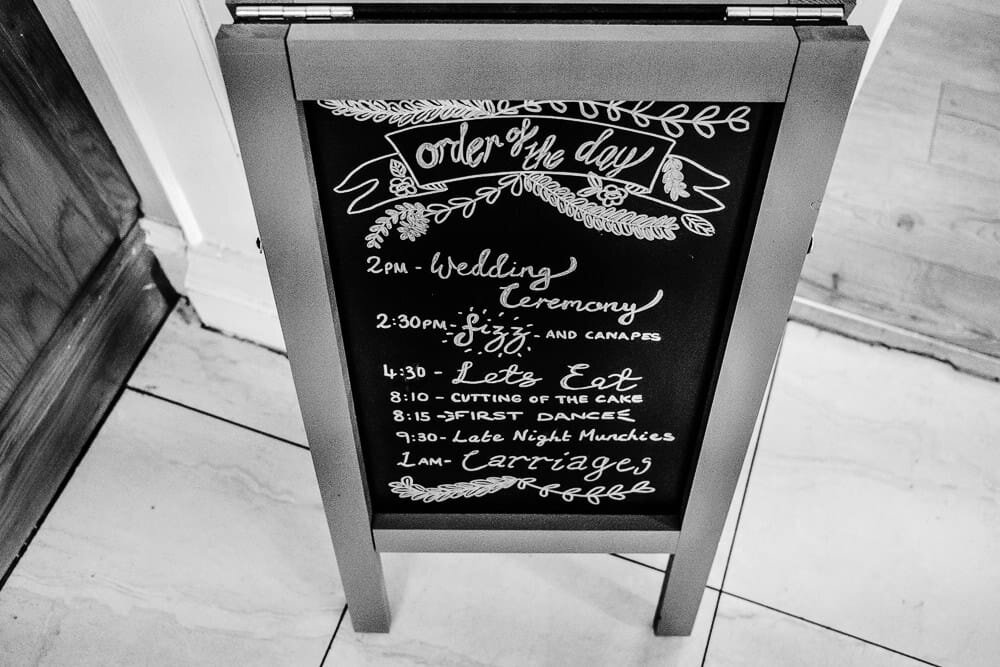 order of the day
2PM - Wedding
Ceremony
2:30PM - fizz - AND CANAPES
4:30 - Lets Eat
8:10 - CUTTING OF THE CAKE
8:15 - FIRST DANCE
9:30 - Late Night Munchies
1AM - Carriages